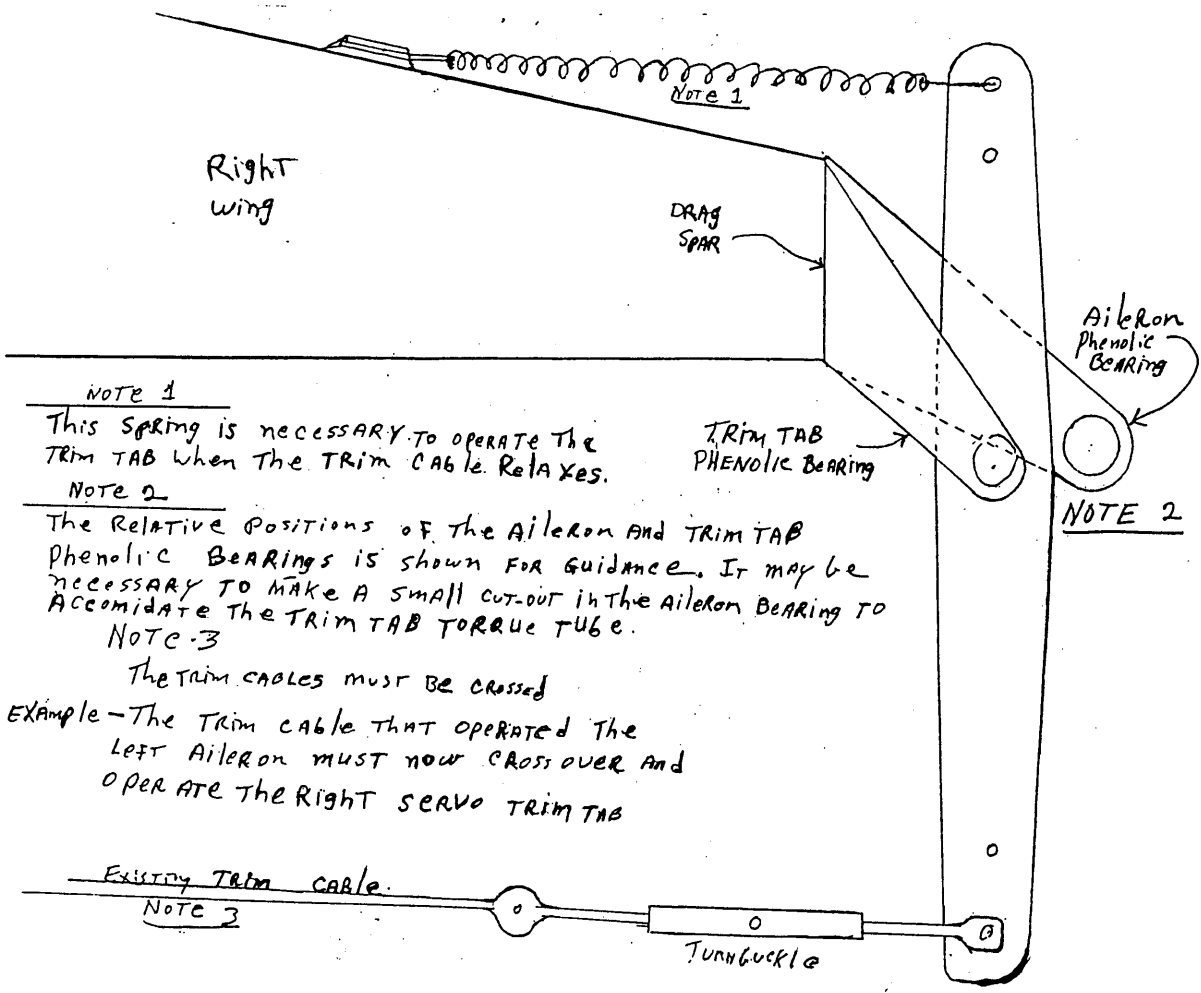 NOTE 1
Right
wing
DRAG
SPAR
AileRon
Phenolic
BeARing
TRim TAB
PHENOlic BeARing
NOTE 2
NOTE 1
This SpRing is necessARY TO OPeRATE The
TRim TAB when The TRim CABle RelAxes.
NOTE 2
The RelATive Positions of The AileRon AnD TRim TAB
Phenolic BeARings is shown FOR Guidance. IT mAY be
necessARY TO MAKe A smAll cuT-ouT in The AileRon BeARing TO
Accomidate The TRim TAB TORque Tube.
NOTE.3
The TRim CABles must Be CROSSed
EXAmple - The TRim CABle THAT OPeRATed The
LefT AileRon must now CROSS OVeR And
OPeRATe The RighT SeRVO TRim TAB
Existing TRim CABle.
NOTE 3
TuRnbuckle